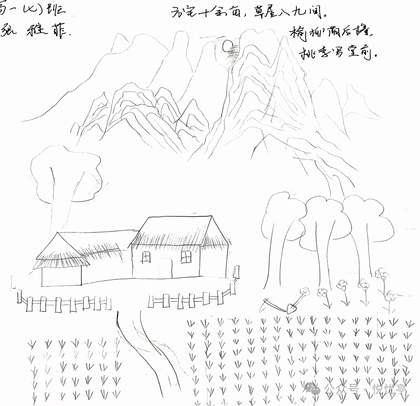 高一(七)班
张雅菲
方宅十余亩,草屋八九间。
榆柳荫后檐,
桃李罗堂前。
公众号